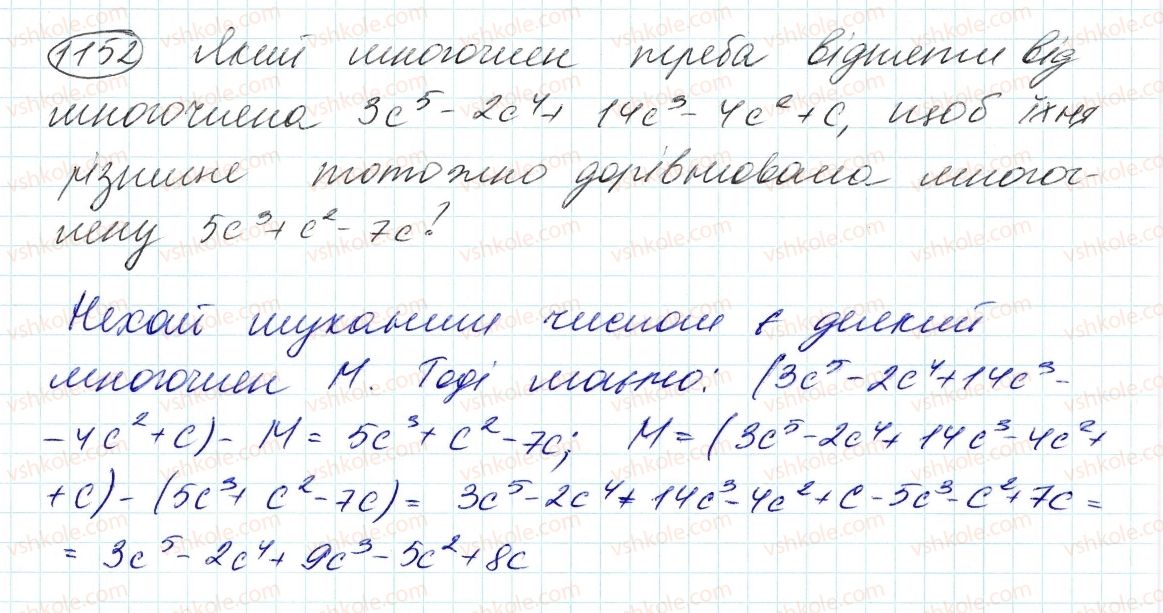 1152 Який многочлен треба відняти від
многочлена 3c⁵ - 2c⁴ + 14c³ - 4c² + c, щоб їхня
різниця тотожно дорівнювала многоч-
лену 5c³ + c² - 7c?
Нехай шуканим числом є деякий
многочлен M. Тоді маємо: (3c⁵ - 2c⁴ + 14c³ -
- 4c² + c) - M = 5c³ + c² - 7c; M = (3c⁵ - 2c⁴ + 14c³ - 4c² +
+ c) - (5c³ + c² - 7c) = 3c⁵ - 2c⁴ + 14c³ - 4c² + c - 5c³ - c² + 7c =
= 3c⁵ - 2c⁴ + 9c³ - 5c² + 8c
vshkole.com